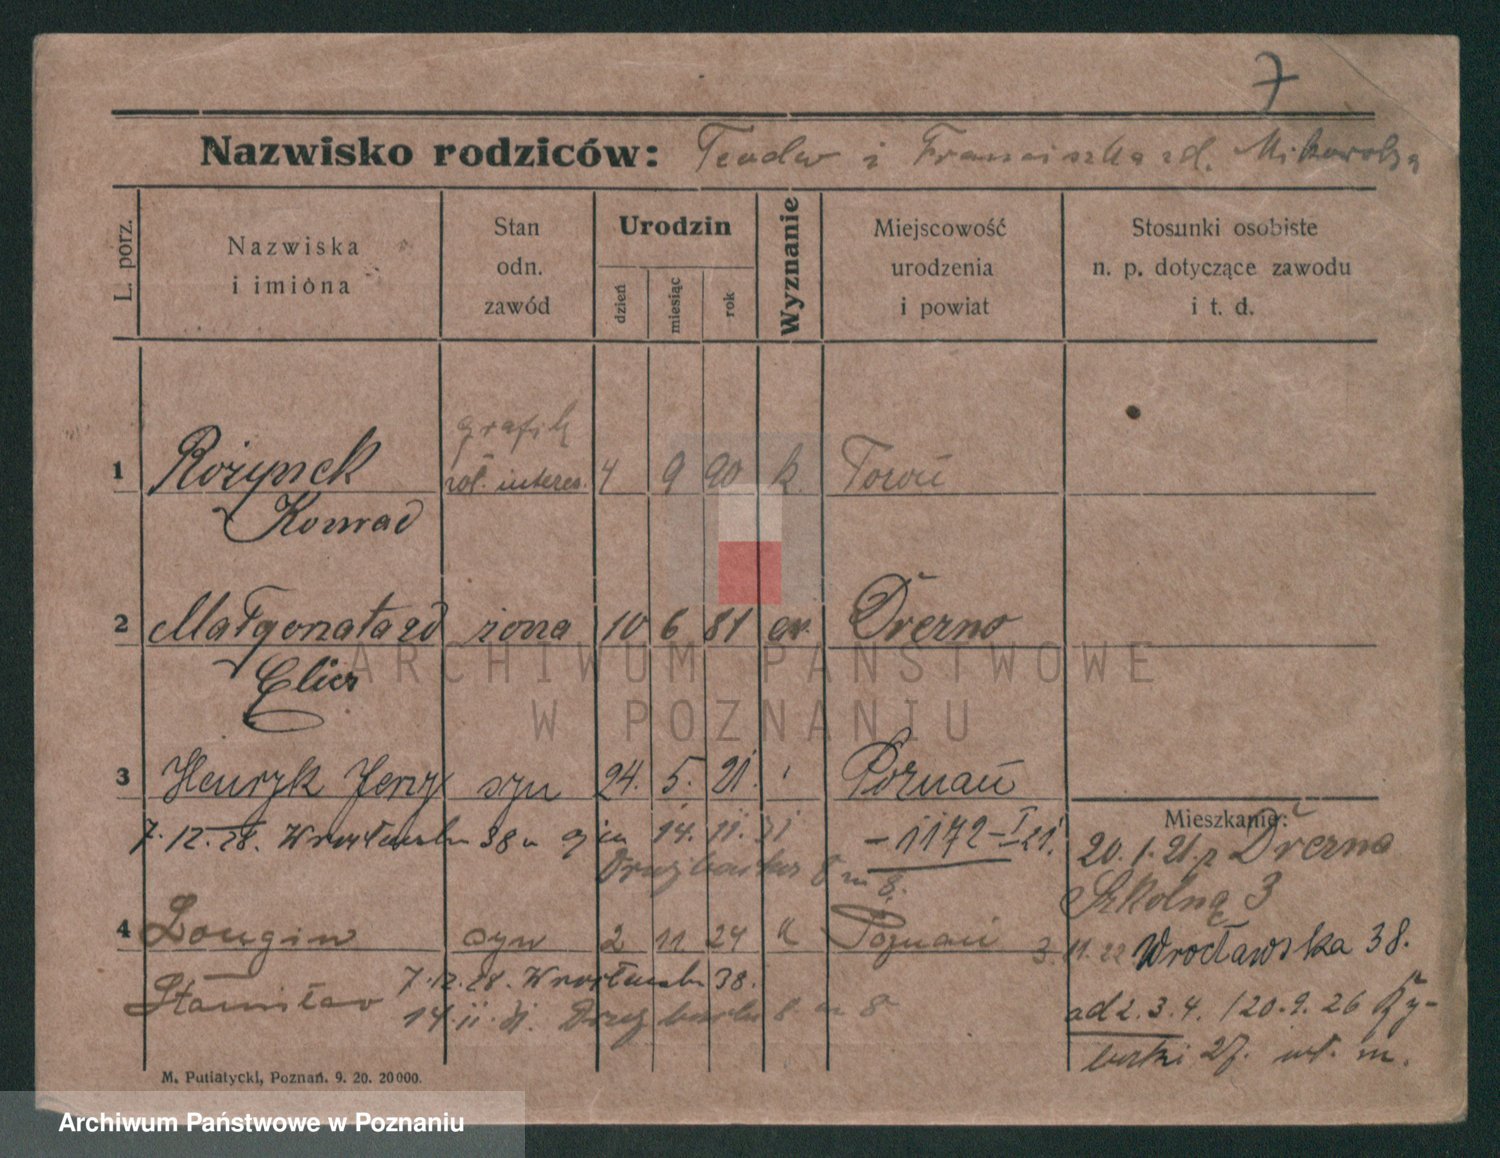 7
Nazwisko rodziców: Teodor i Franciszka zd. Mikorska
L. porz.
Nazwiska
i imiona
Stan
odn.
zawód
Urodzin
dzień
miesiąc
rok
Wyznanie
Miejscowość
urodzenia
i powiat
Stosunki osobiste
n. p. dotyczące zawodu
i t. d.
grafik
1 Rożynek 4 9 90 k. Toruń
Konrad
2 Małgorzata zd żona 10 6 81 ew.
3 Henryk Jerzy syn 24. 5. 21. Poznań
Mieszkanie:
7.12.28. Wrocławska 38 14. 11. 31 -1172-I 21.
20.1.21. z
8 m 8.
Szkolna 3
4 Longin syn 2 11 24 k Poznań
3.11.22 Wrocławska 38.
7.12.28. Wrocławska 38.
Stanisław
14.11.31. 8 m 8
ad 2.3.4. 120.9.26 Ry-
baki 27. m.
M. Putiatycki, Poznań. 9. 20. 20000.
ARCHIWUM PAŃSTWOWE
W POZNANIU
Archiwum Państwowe w Poznaniu